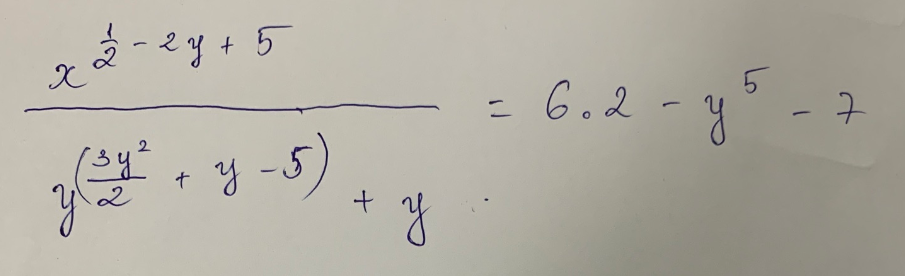 \frac{x^{\frac{1}{2} - 2y + 5}}{y^{\left(\frac{3y^2}{2} + y - 5\right)} + y} = 6.2 - y^5 - 7